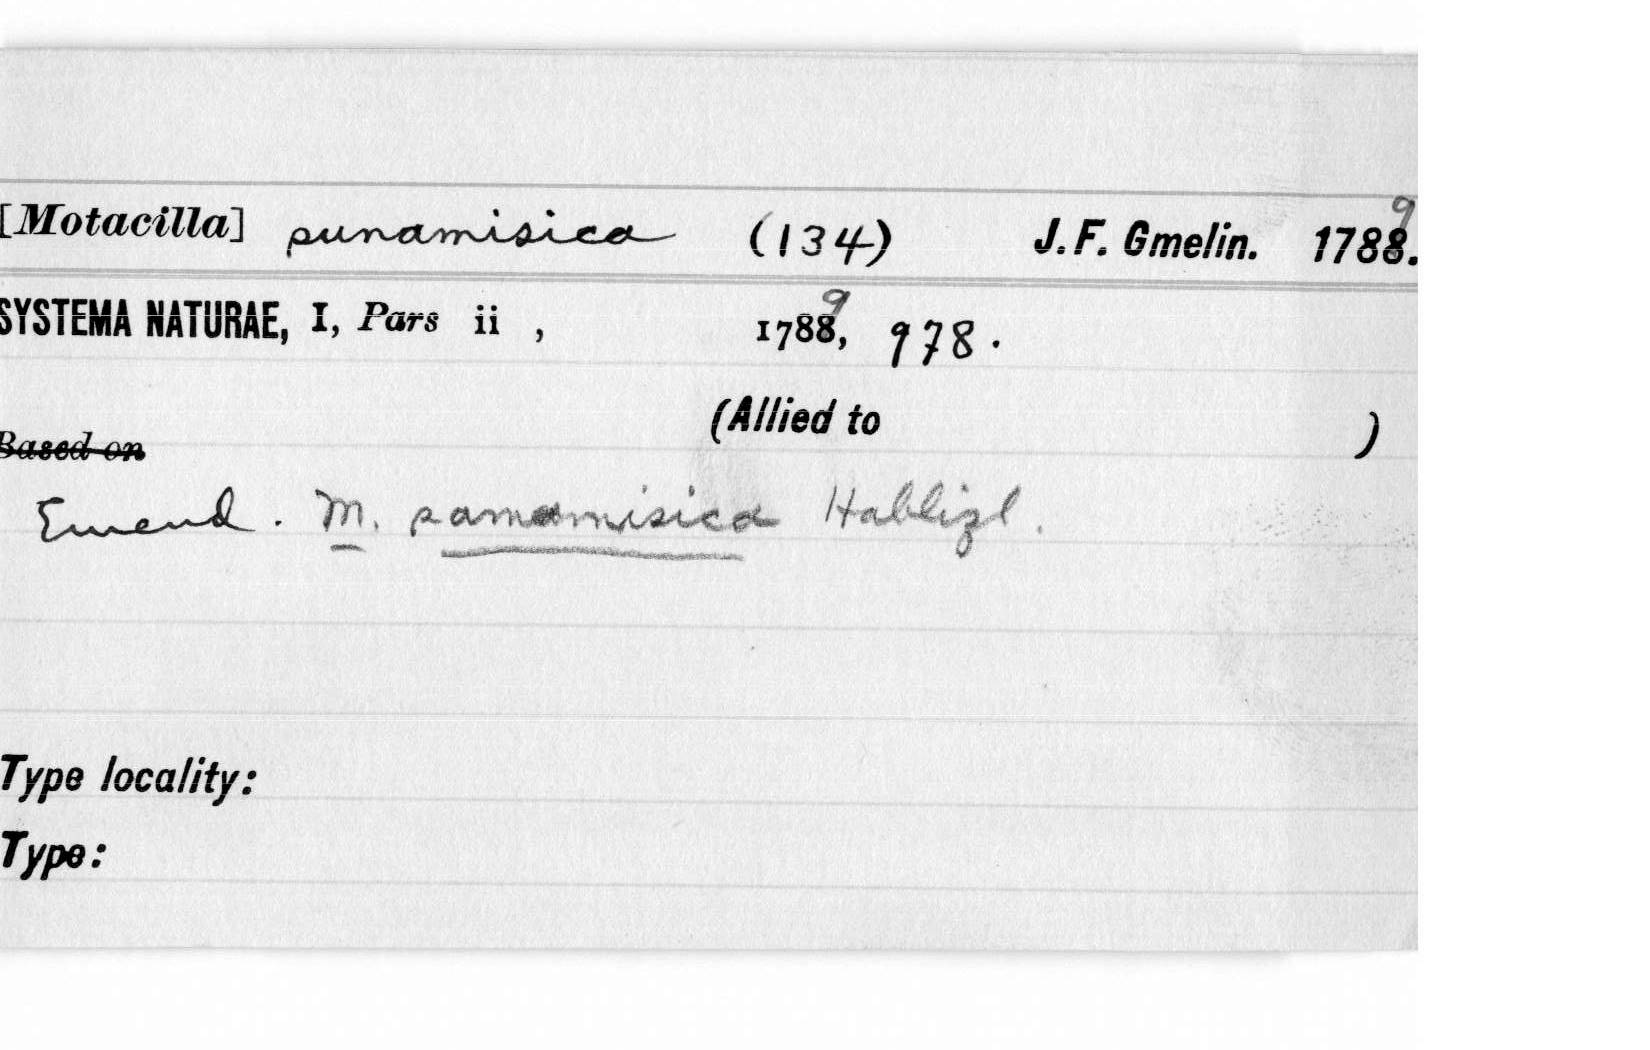 [Motacilla] sunamisica (134) J. F. Gmelin. 17889.
SYSTEMA NATURAE, I, Pars ii , 17889, 978.
(Allied to )
Based on
Emend. M. samamisica Hablizl.
Type locality:
Type: